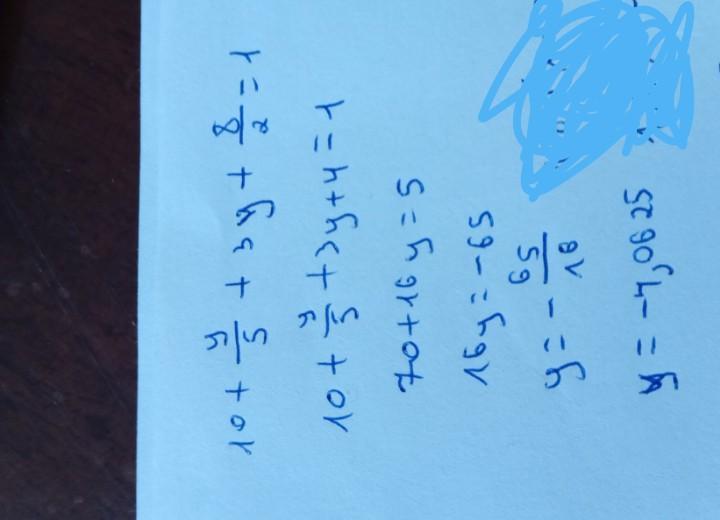 10 + y/5 + 3y + 8/2 = 1
10 + y/5 + 3y + 4 = 1
70 + 16y = 5
16y = -65
y = - 65/16
y = -4,0625